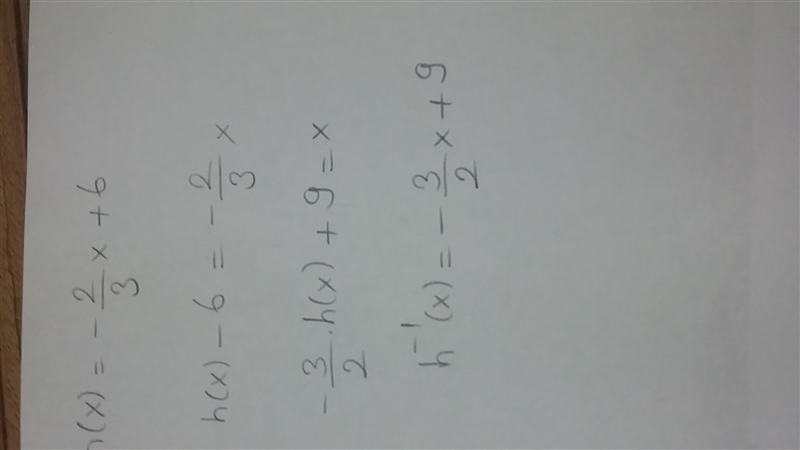 h(x) = -2/3 x + 6
h(x) - 6 = -2/3 x
-3/2 . h(x) + 9 = x
h⁻¹(x) = -3/2 x + 9